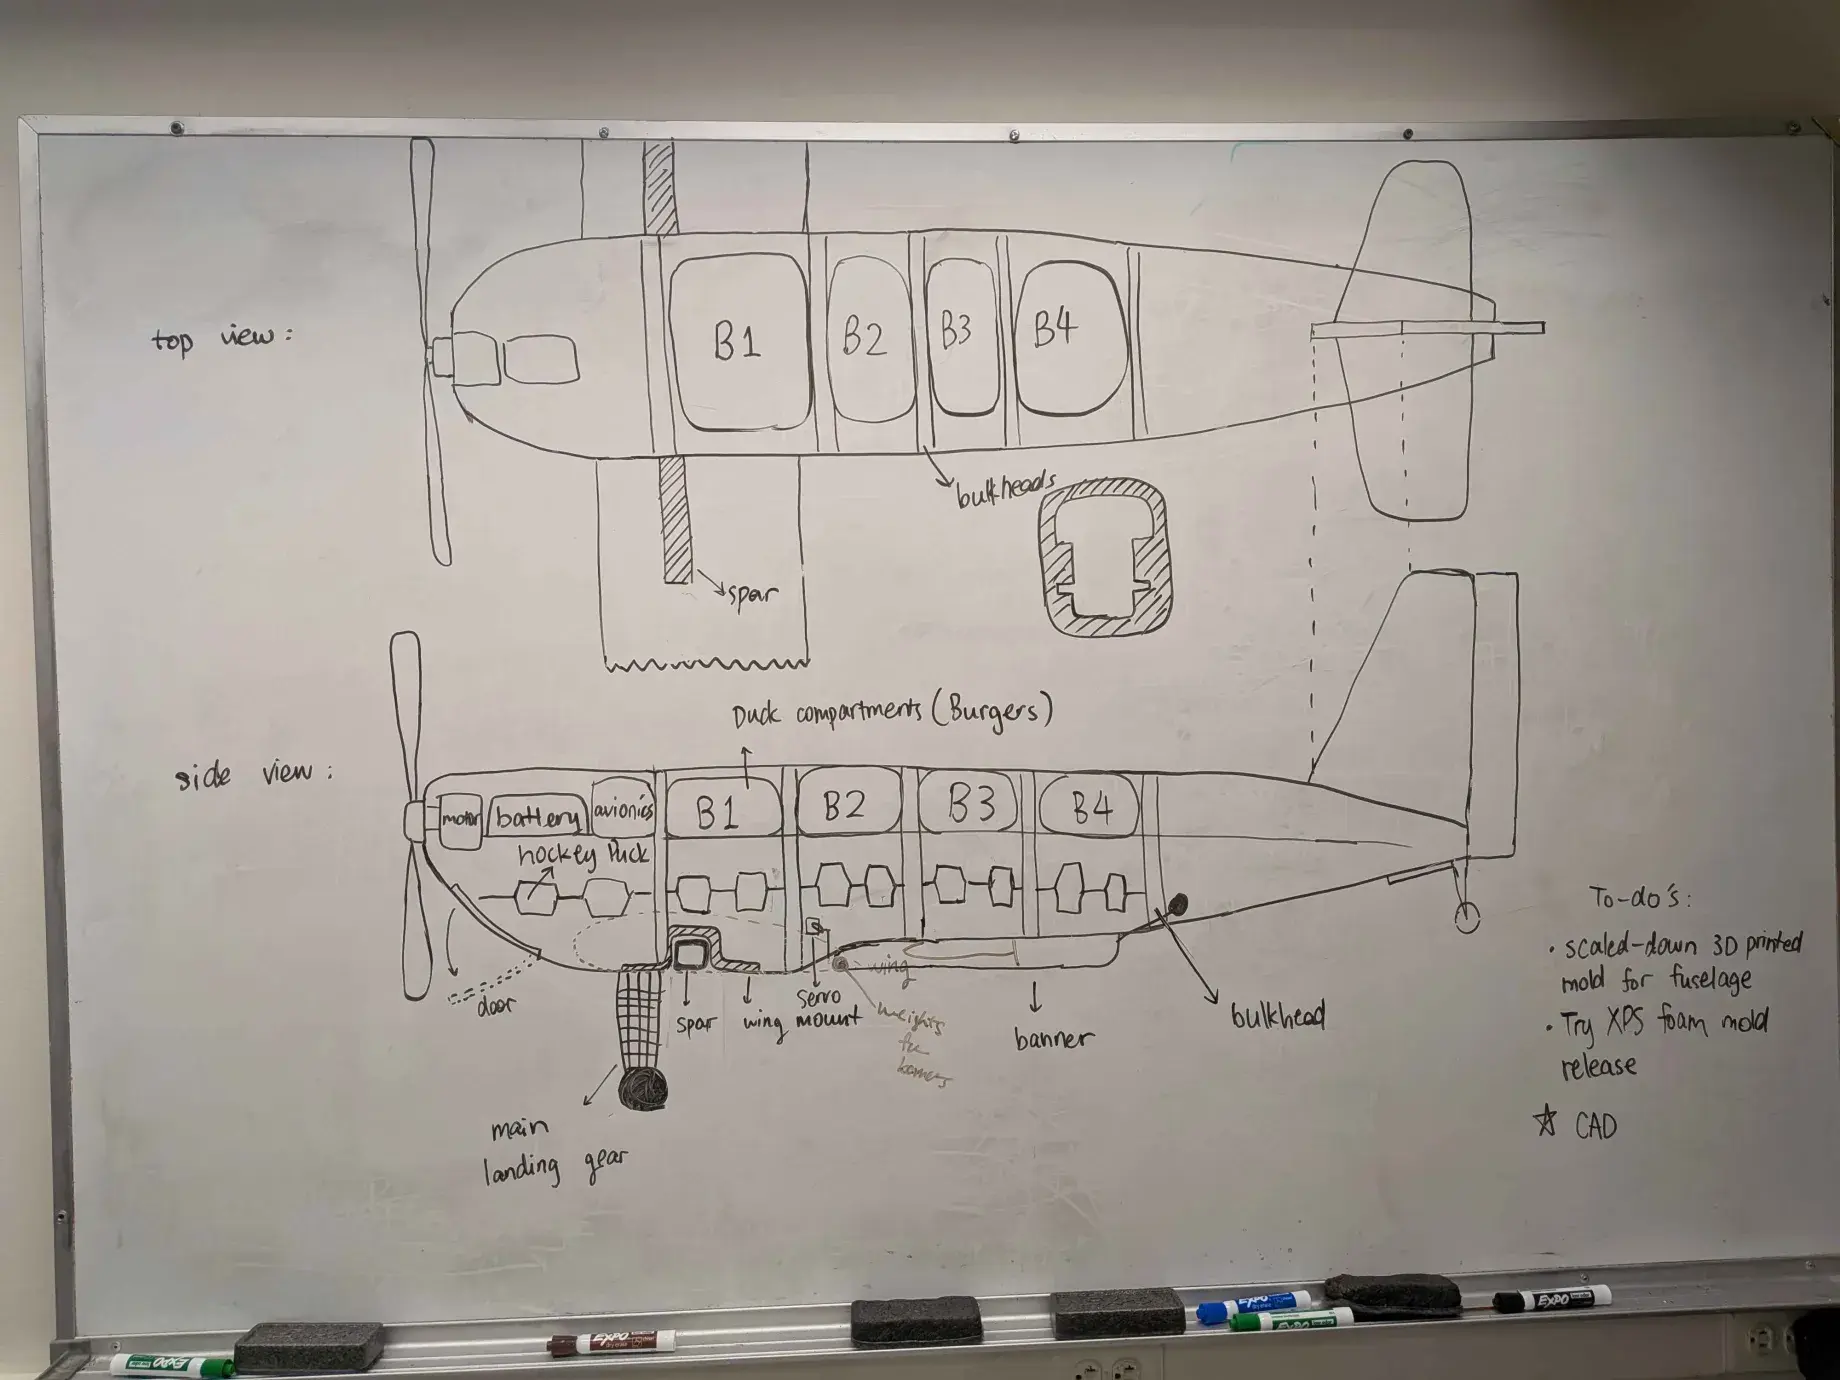 top view:
B1
B2
B3
B4
bulkheads
spar
Duck compartments (Burgers)
side view:
motor
battery
avionics
B1
B2
B3
B4
hockey Puck
door
spar
wing
servo
mount
wing
weights
for
banner
bulkhead
main
landing gear
To-do's:
• scaled-down 3D printed
mold for fuselage
• Try XPS foam mold
release
☆ CAD
EXPO
EXPO
dry erase
EXPO
EXPO